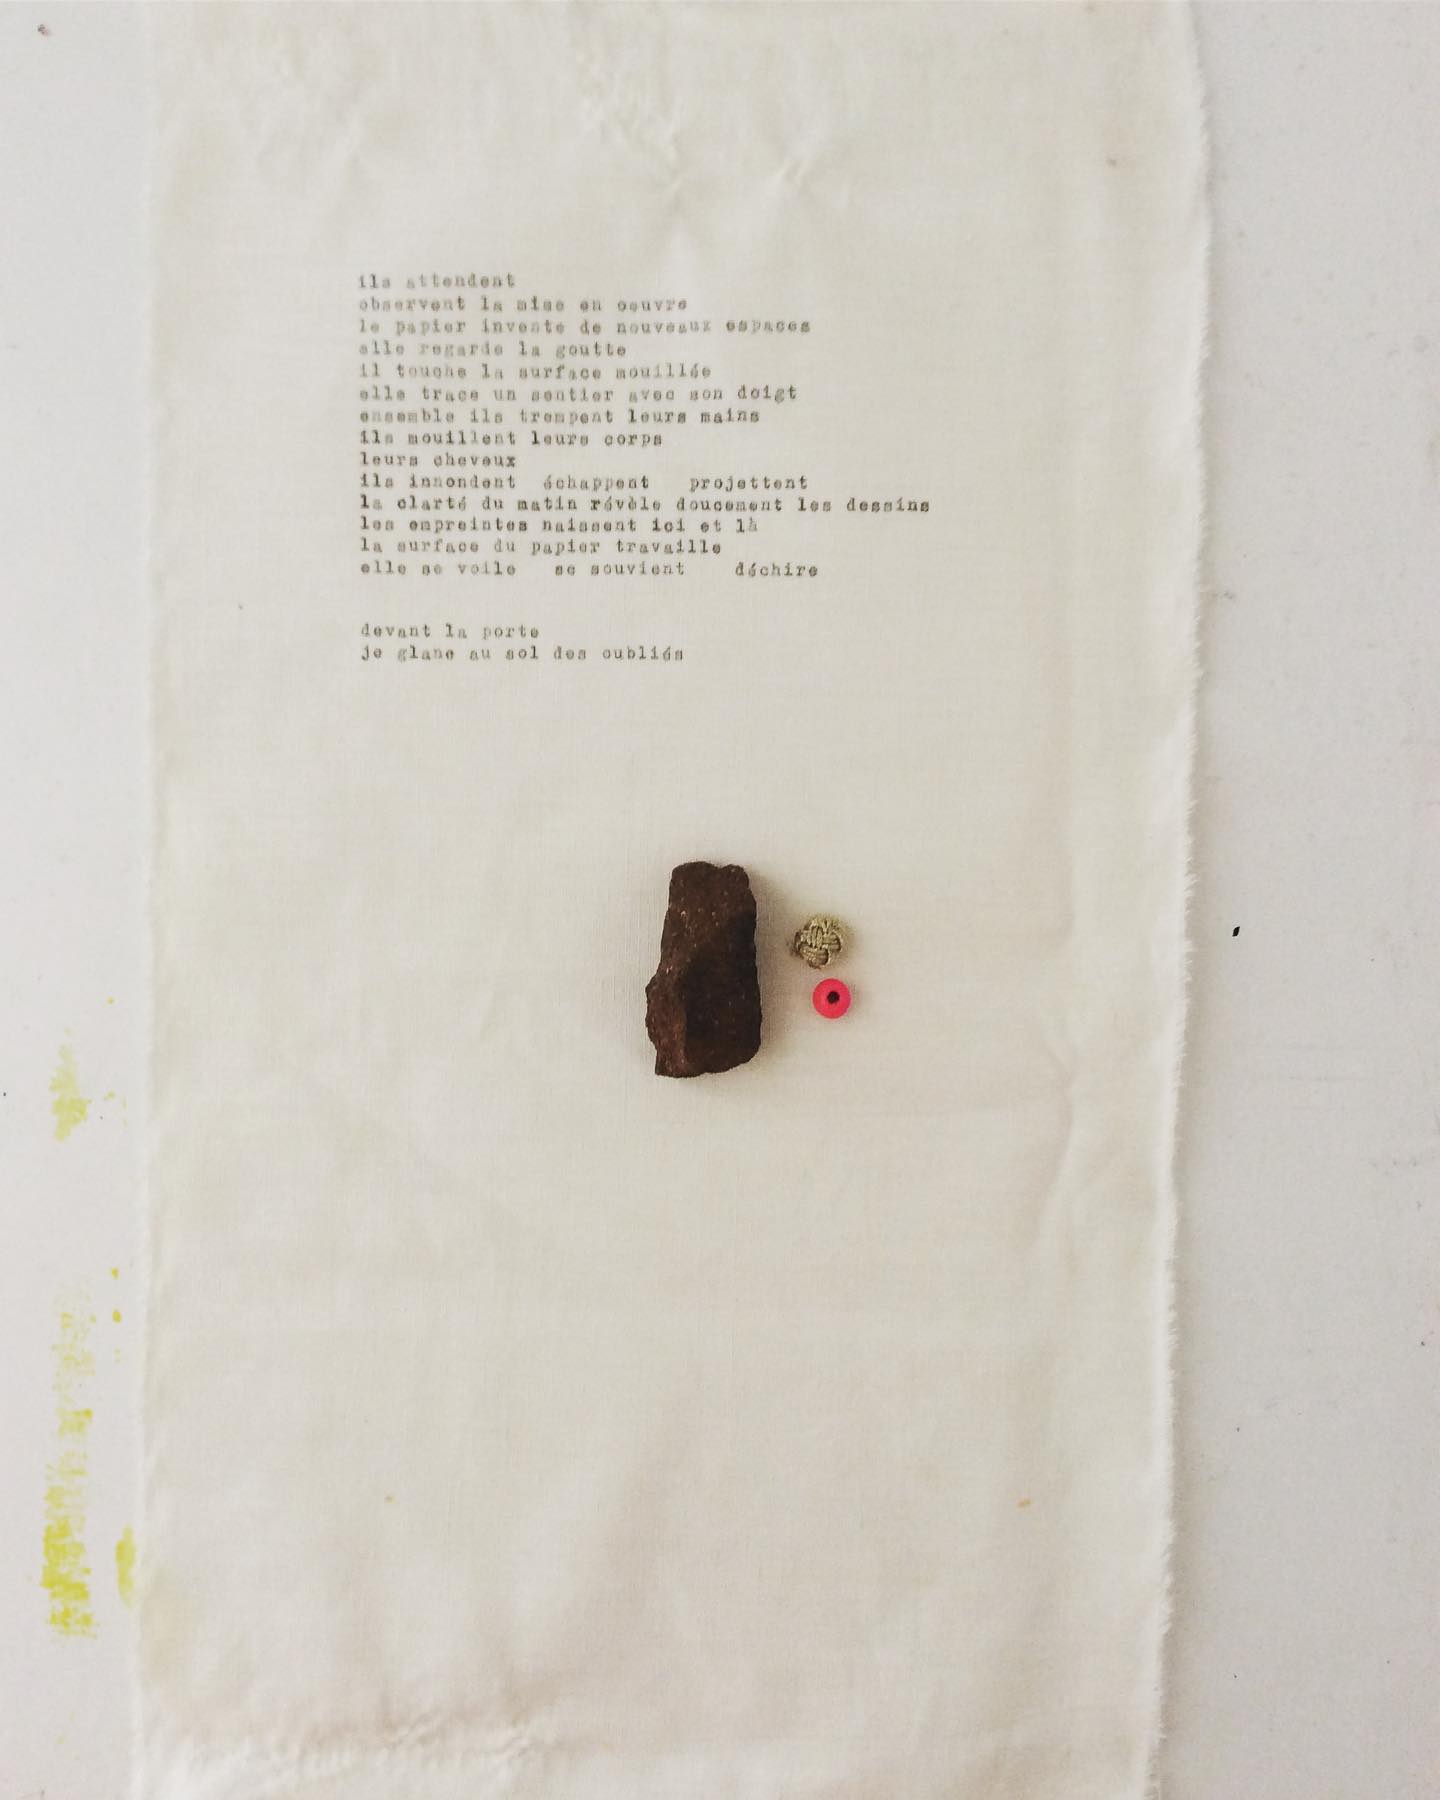 ils attendent
observent la mise en oeuvre
le papier invente de nouveaux espaces
elle regarde la goutte
il touche la surface mouillée
elle trace un sentier avec son doigt
ensemble ils trempent leurs mains
ils mouillent leurs corps
leurs cheveux
ils innondent échappent projettent
la clarté du matin révèle doucement les dessins
les empreintes naissent ici et là
la surface du papier travaille
elle se voile se souvient déchire
devant la porte
je glane au sol des oubliés